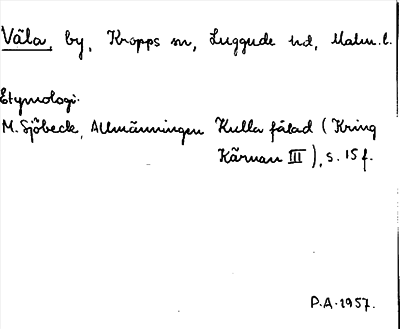 Väla, by, Kropps sn, Luggude hd, Malm.l.
Etymologi.
M. Sjöbeck, Allmänningen Kulla fälad (Kring
Kärnan III), s. 15 f.
P.A. 1957.